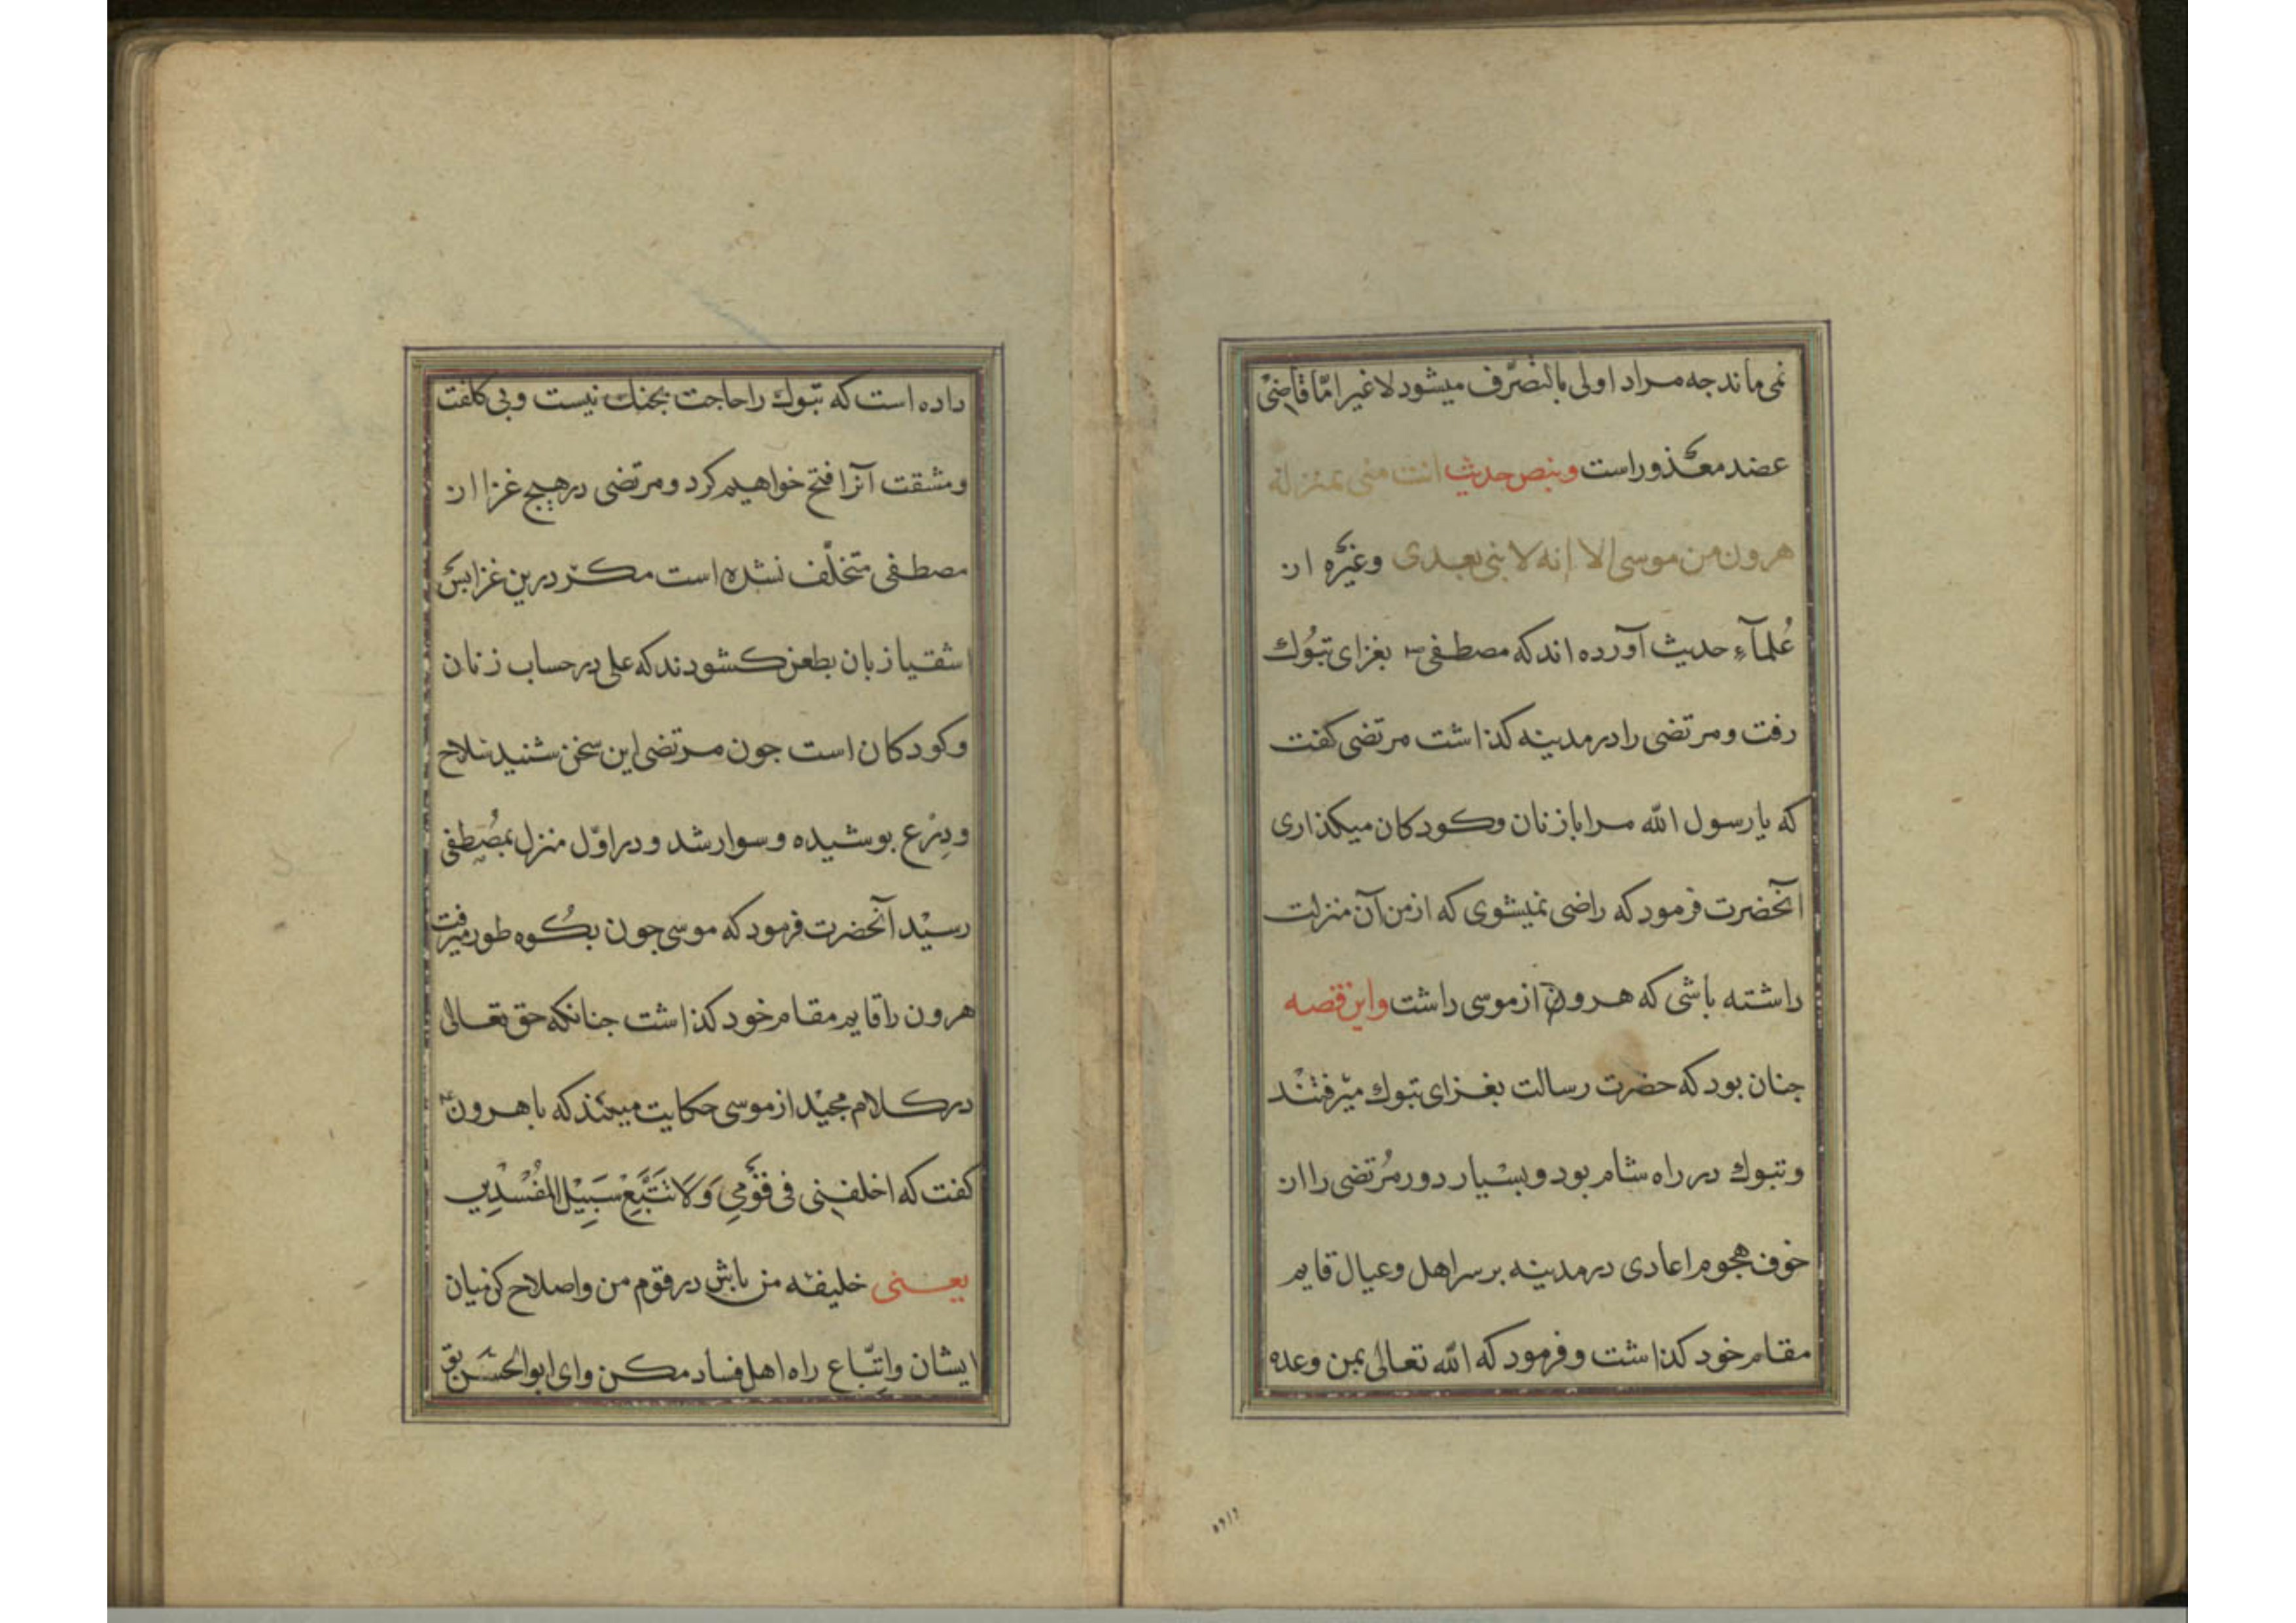 نمی ماند جه مراد اولی بالتصرّف میشود لاغیر امّا قاضیْ
عضد معذور است وبنص حدیث انت منی بمنزلة
هرون من موسی الا انه لا نبی بعدی وغیره از
عُلمآءِ حدیث آورده اند که مصطفی بغزای تبُوك
رفت ومرتضی را در مدینه کذاشت مرتضی کفت
که یا رسول الله مرا با زنان وکودکان میکذاری
آنحضرت فرمود که راضی نمیشوی که از من آن منزلت
داشته باشی که هرون از موسی داشت واین قصه
جنان بود که حضرت رسالت بغزای تبوك میرفتند
وتبوك در راه شام بود وبسیار دور مُرتضی را از
خوف هجوم اعادی در مدینه بر سر اهل وعیال قایم
مقام خود کذاشت وفرمود که الله تعالی بمن وعده
داده است که تبوك را حاجت بجنك نیست وبی کلفت
ومشقت آنرا فتح خواهیم کرد ومرتضی در هیچ غزا از
مصطفی متخلّف نشده است مکر درین غزا بس
اشقیا زبان بطعن کشودند که علی در حساب زنان
وکودکان است جون مرتضی این سخن شنید سلاح
ودِرْع بوشیده وسوار شد ودر اوّل منزل بمصُطِفی
رسیْد آنحضرت فرمود که موسی جون بکُوه طور میرفت
هرون را قایم مقام خود کذاشت جنانکه حق تعالی
در کلام مجیْد از موسی حکایت میکند که با هرون
کفت که اخلفنِی فی قَوْمِی وَلَا تَتَّبِعْ سَبِیْلَ المُفْسِدِیْن
یعنی خلیفه من باش در قوم من واصلاح کن میان
ایشان واتِّباع راه اهل فساد مکن وای ابوالحسَن بق